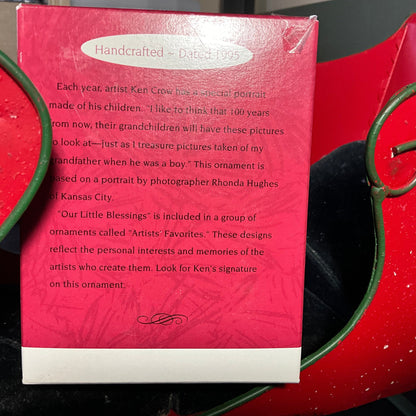 Handcrafted ~ Dated 1995
Each year, artist Ken Crow has a special portrait
made of his children. "I like to think that 100 years
from now, their grandchildren will have these pictures
to look at—just as I treasure pictures taken of my
grandfather when he was a boy." This ornament is
based on a portrait by photographer Rhonda Hughes
of Kansas City.
"Our Little Blessings" is included in a group of
ornaments called "Artists' Favorites." These designs
reflect the personal interests and memories of the
artists who create them. Look for Ken's signature
on this ornament.